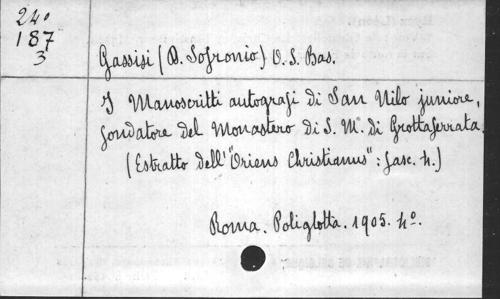 24º
187
3
Gassisi (D. Sofronio) O. S. Bas.
I Manoscritti autografi di San Nilo juniore,
fondatore del Monastero di S. M. di Grottaferrata.
(Estratto dell' "Oriens Christianus": fasc. 4.)
Roma. Poliglotta. 1905. 4º.